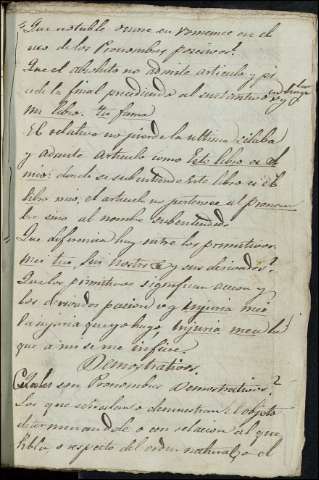 Que notable ocurre en romance en el
uso de los Pronombres posesivos?
Que el absoluto no admite articulo, y pi
erde la final precediendo al sustantivo
mi libro. tu fama
El relativo no pierde la ultima silaba
y admite articulo como Este libro es el
mio: donde se subentiende Este libro es el
libro mio, el articulo no pertenece al pronom
bre sino al nombre subentendido.
Que diferencia hay entre los primitivos
mei tui sui nostri y sus derivados?
Que los primitivos significan accion y
los derivados pasion vg injuria mea
la injuria que yo hago, injuria mea la
que a mi se me infiere.
Demostrativos.
Cuales son Pronombres Demostrativos?
Los que señalan o demuestran el objeto
determinandolo o con relacion al que
habla, o aspecto del orden natural, o el